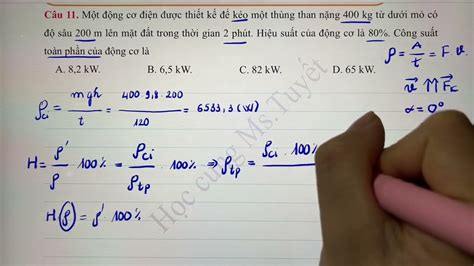 Câu 11. Một động cơ điện được thiết kế để kéo một thùng than nặng 400 kg từ dưới mỏ có
độ sâu 200 m lên mặt đất trong thời gian 2 phút. Hiệu suất của động cơ là 80%. Công suất
toàn phần của động cơ là
A. 8,2 kW. B. 6,5 kW. C. 82 kW. D. 65 kW.
𝒫 = A/t = F.v.
v⃗ ↑↑ F⃗K
α = 0°
𝒫ci = mgh/t = 400.9,8.200/120 = 6533,3 (W)
H = 𝒫'/𝒫 . 100% = 𝒫ci/𝒫tp . 100% ⇒ 𝒫tp = 𝒫ci . 100%
H𝒫 = 𝒫' . 100%
Học cùng Ms.Tuyết